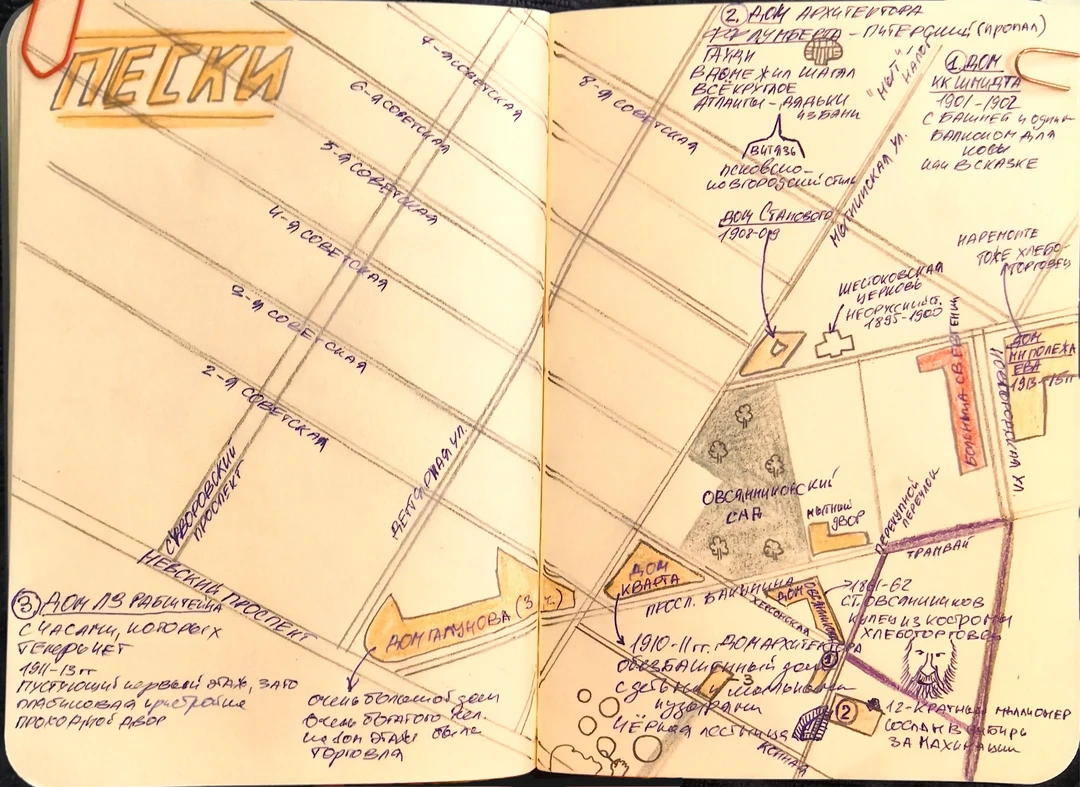 ПЕСКИ
4-Я СОВЕТСКАЯ
6-Я СОВЕТСКАЯ
5-Я СОВЕТСКАЯ
4-Я СОВЕТСКАЯ
3-Я СОВЕТСКАЯ
2-Я СОВЕТСКАЯ
СУВОРОВСКИЙ
ПРОСПЕКТ
ДЕГТЯРНАЯ УЛ.
НЕВСКИЙ ПРОСПЕКТ
③ ДОМ ЛЗ РАБШТЕЙНА
С ЧАСАМИ, КОТОРЫХ
ТЕПЕРЬ НЕТ
1911-13 гг
ПУСТУЮЩИЙ ПЕРВЫЙ ЭТАЖ, ЗАТО
ПРОХОДНОЙ ДВОР
ДОМ ГАМУЛОВА (3
ОЧЕНЬ БОЛЬШОЙ ДОМ
ОЧЕНЬ БОГАТОГО
ЭТАЖЕ БЫЛА
ТОРГОВЛЯ
8-Я СОВЕТСКАЯ
2. ДОМ АРХИТЕКТОРА
ФФ ЛУМБЕРГА - ПИТЕРСКИЙ (ПРОПАЛ)
ГАУДИ
В ДОМЕ ЖИЛ ШАГАЛ
ВСЁ КРУГЛОЕ
АТЛАНТЫ - ДЯДЬКИ
ИЗ БАНИ
ВИТЯЗЬ
ПСКОВСКО-
НОВГОРОДСКИЙ СТИЛЬ
ДОМ СТАНОВОГО
1908-09
① ДОМ
КК ШМИДТА
1901-1902
С БАШНЕЙ И ОДНИМ
БАЛКОНОМ ДЛЯ
КОСЫ
КАК В СКАЗКЕ
МЫТНИНСКАЯ УЛ.
НА РЕМОНТЕ
ТОЖЕ ХЛЕБО-
ТОРГОВЕЦ
ШЕСТОКОВСКАЯ
ЦЕРКОВЬ
НЕОРУССКИЙ СТ.
1895-1900
ДОМ
НИ ПОЛЕЖА
ЕВА
1913-15 гг
БОЛЬНИЦА СВ ЕВГЕНИИ
НОВГОРОДСКАЯ УЛ
ОВСЯННИКОВСКИЙ
САД
МЫТНЫЙ
ДВОР
ПЕРЕКУПНОЙ
ПЕРЕУЛОК
ТРАМВАЙ
ДОМ
КВАРТА
ПРОСП. БАКУНИНА
ХЕРСОНСКАЯ
ДОМ
ОВСЯННИКОВА
1861-62
СТ. ОВСЯННИКОВ
КУПЕЦ ИЗ КОСТРОМЫ
ХЛЕБОТОРГОВЕЦ
1910-11 гг. ДОМ АРХИТЕКТОРА
ОБЕЗБАШЕННЫЙ ДОМ
С ДЕТЬМИ И
ЧЁРНАЯ ЛЕСТНИЦА
3
①
②
12-КРАТНЫЙ МИЛЛИОНЕР
СОСЛАН В СИБИРЬ
ЗА МАХИНАЦИИ